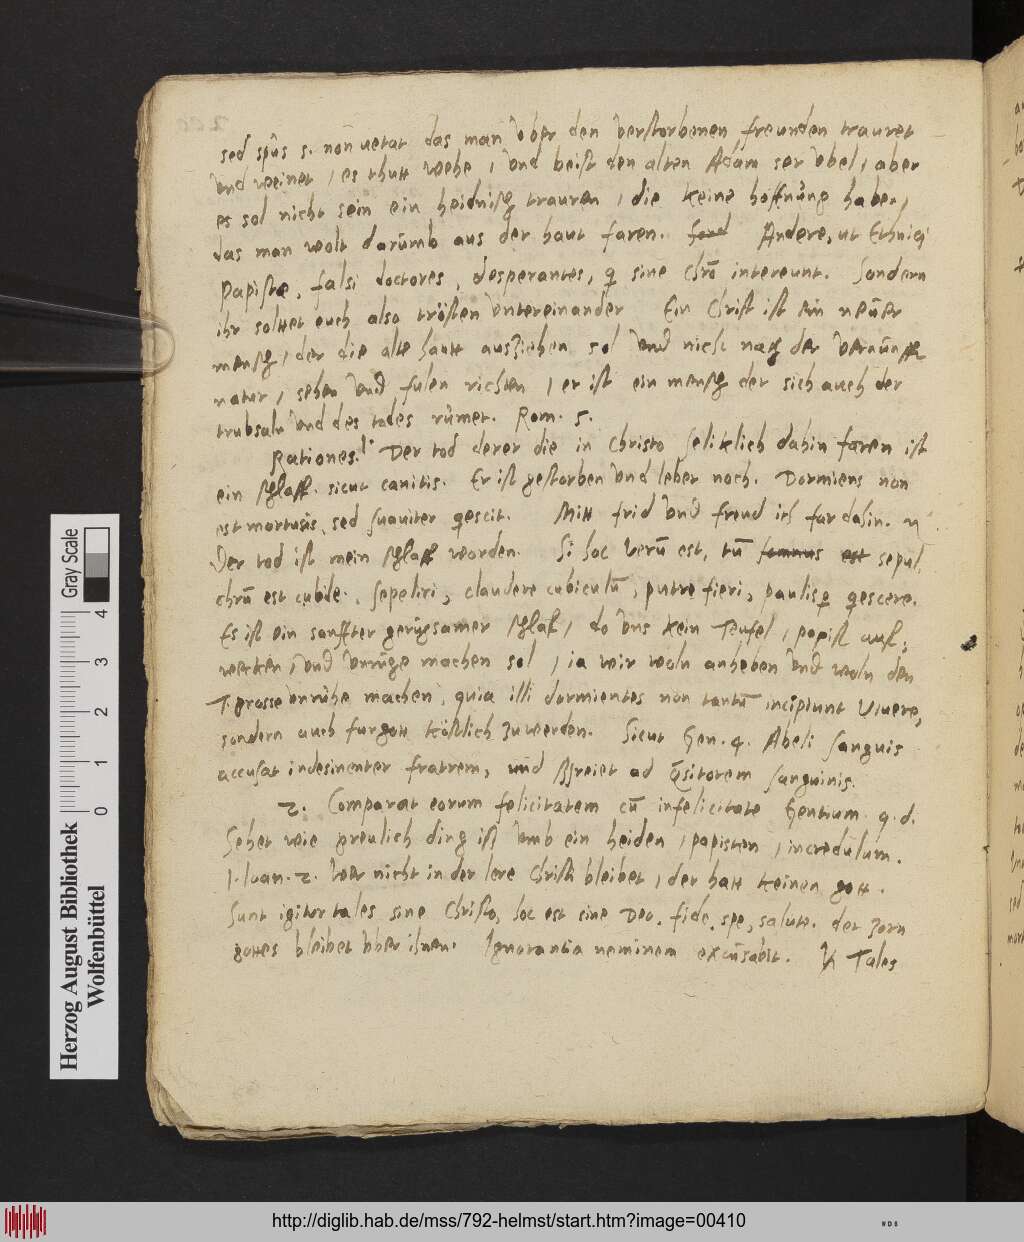 sed spūs s. non uetat das man vber den verstorbenen freunden trauret
vnd weinet / es thutt wehe / vnd beist den alten Adam ser vbel / aber
es sol nicht sein ein heidnisch trauren / die keine hoffnung haben /
das man wolt darumb aus der haut faren. Andere, ut Ethnici
Papistæ, falsi doctores, desperantes, q sine Chrō intereunt. Sondern
ihr soltet euch also trösten vntereinander Ein Christ ist ein neuer
mensch / der die alte hautt ausziehen sol vnd nicht nach der vernunfft
natur / sehen vnd fulen richten / er ist ein mensch der sich auch der
trubsaln vnd des todes rumet. Rom. 5.
Rationes. 1. Der tod derer die in Christo seliklich dahin faren ist
ein schlaff. sicut canitis. Er ist gestorben vnd lebet noch. Dormiens non
est mortuus, sed suauiter qescit. Mitt frid vnd freud ich far dahin.
Der tod ist mein schlaff worden. Si hoc verū est, tū somnus est sepul
chrū est cubile. Sepeliri, claudere cubiculū, putrefieri, paulisp qescere.
Es ist ein sanffter gerugsamer schlaf / do vns kein Teufel / papist auf
wecken / vnd vnruge machen sol / ia wir woln anheben vnd woln den
grosse vnruhe machen, quia illi dormientes non tantū incipiunt viuere,
sondern auch fur gott köstlich zu werden. Sicut Gen. 4. Abeli sanguis
accusat indesinenter fratrem, und schreiet ad Qsitorem sanguinis.
2. Comparat eorum felicitatem cū infelicitate Gentium. q. d.
Sehet wie greulich ding ist vmb ein heiden / papisten / incredulum.
1. Ioan. 2. Wer nicht in der lere Christi bleibet / der hatt keinen gott.
Sunt igitur tales sine Christo, hoc est sine Deo. fide, spe, salute. der zorn
gottes bleibet vber ihnen. Ignorantia neminem excusabit. Tales
Herzog August Bibliothek
Wolfenbüttel
Gray Scale
0 1 2 3 4
http://diglib.hab.de/mss/792-helmst/start.htm?image=00410